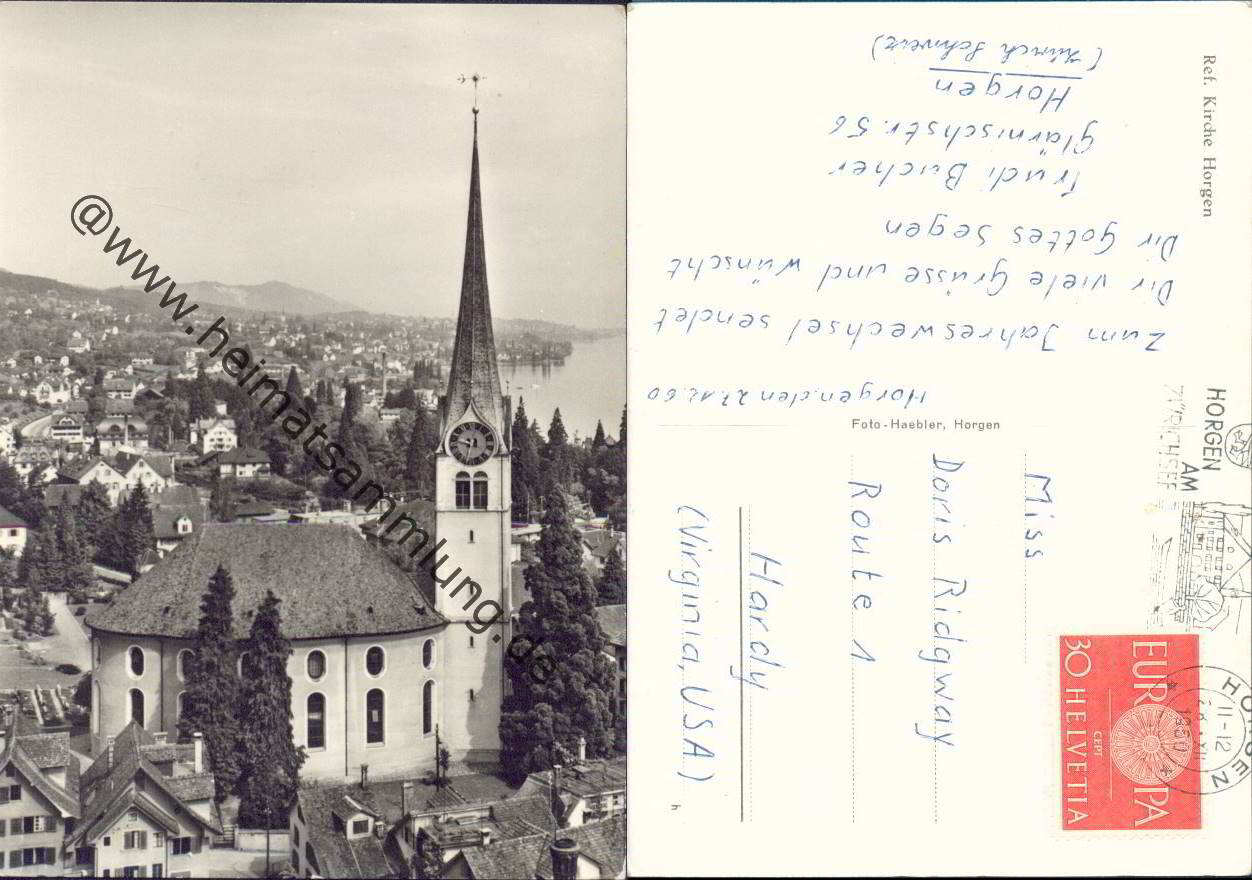 @www.heimatsammlung.de
Ref. Kirche Horgen
Horgen, den 27.12.60
Zum Jahreswechsel sendet
Dir viele Grüsse und wünscht
Dir Gottes Segen
Trudi Bucher
Glärnischstr. 56
Horgen
(Zürich Schweiz)
Foto-Haebler, Horgen
Miss
Doris Ridgway
Route 1
Hardy
(Virginia, USA)
HORGEN
AM
ZÜRICHSEE
HORGEN
II-12
XII
1960
EUROPA
CEPT
30 HELVETIA